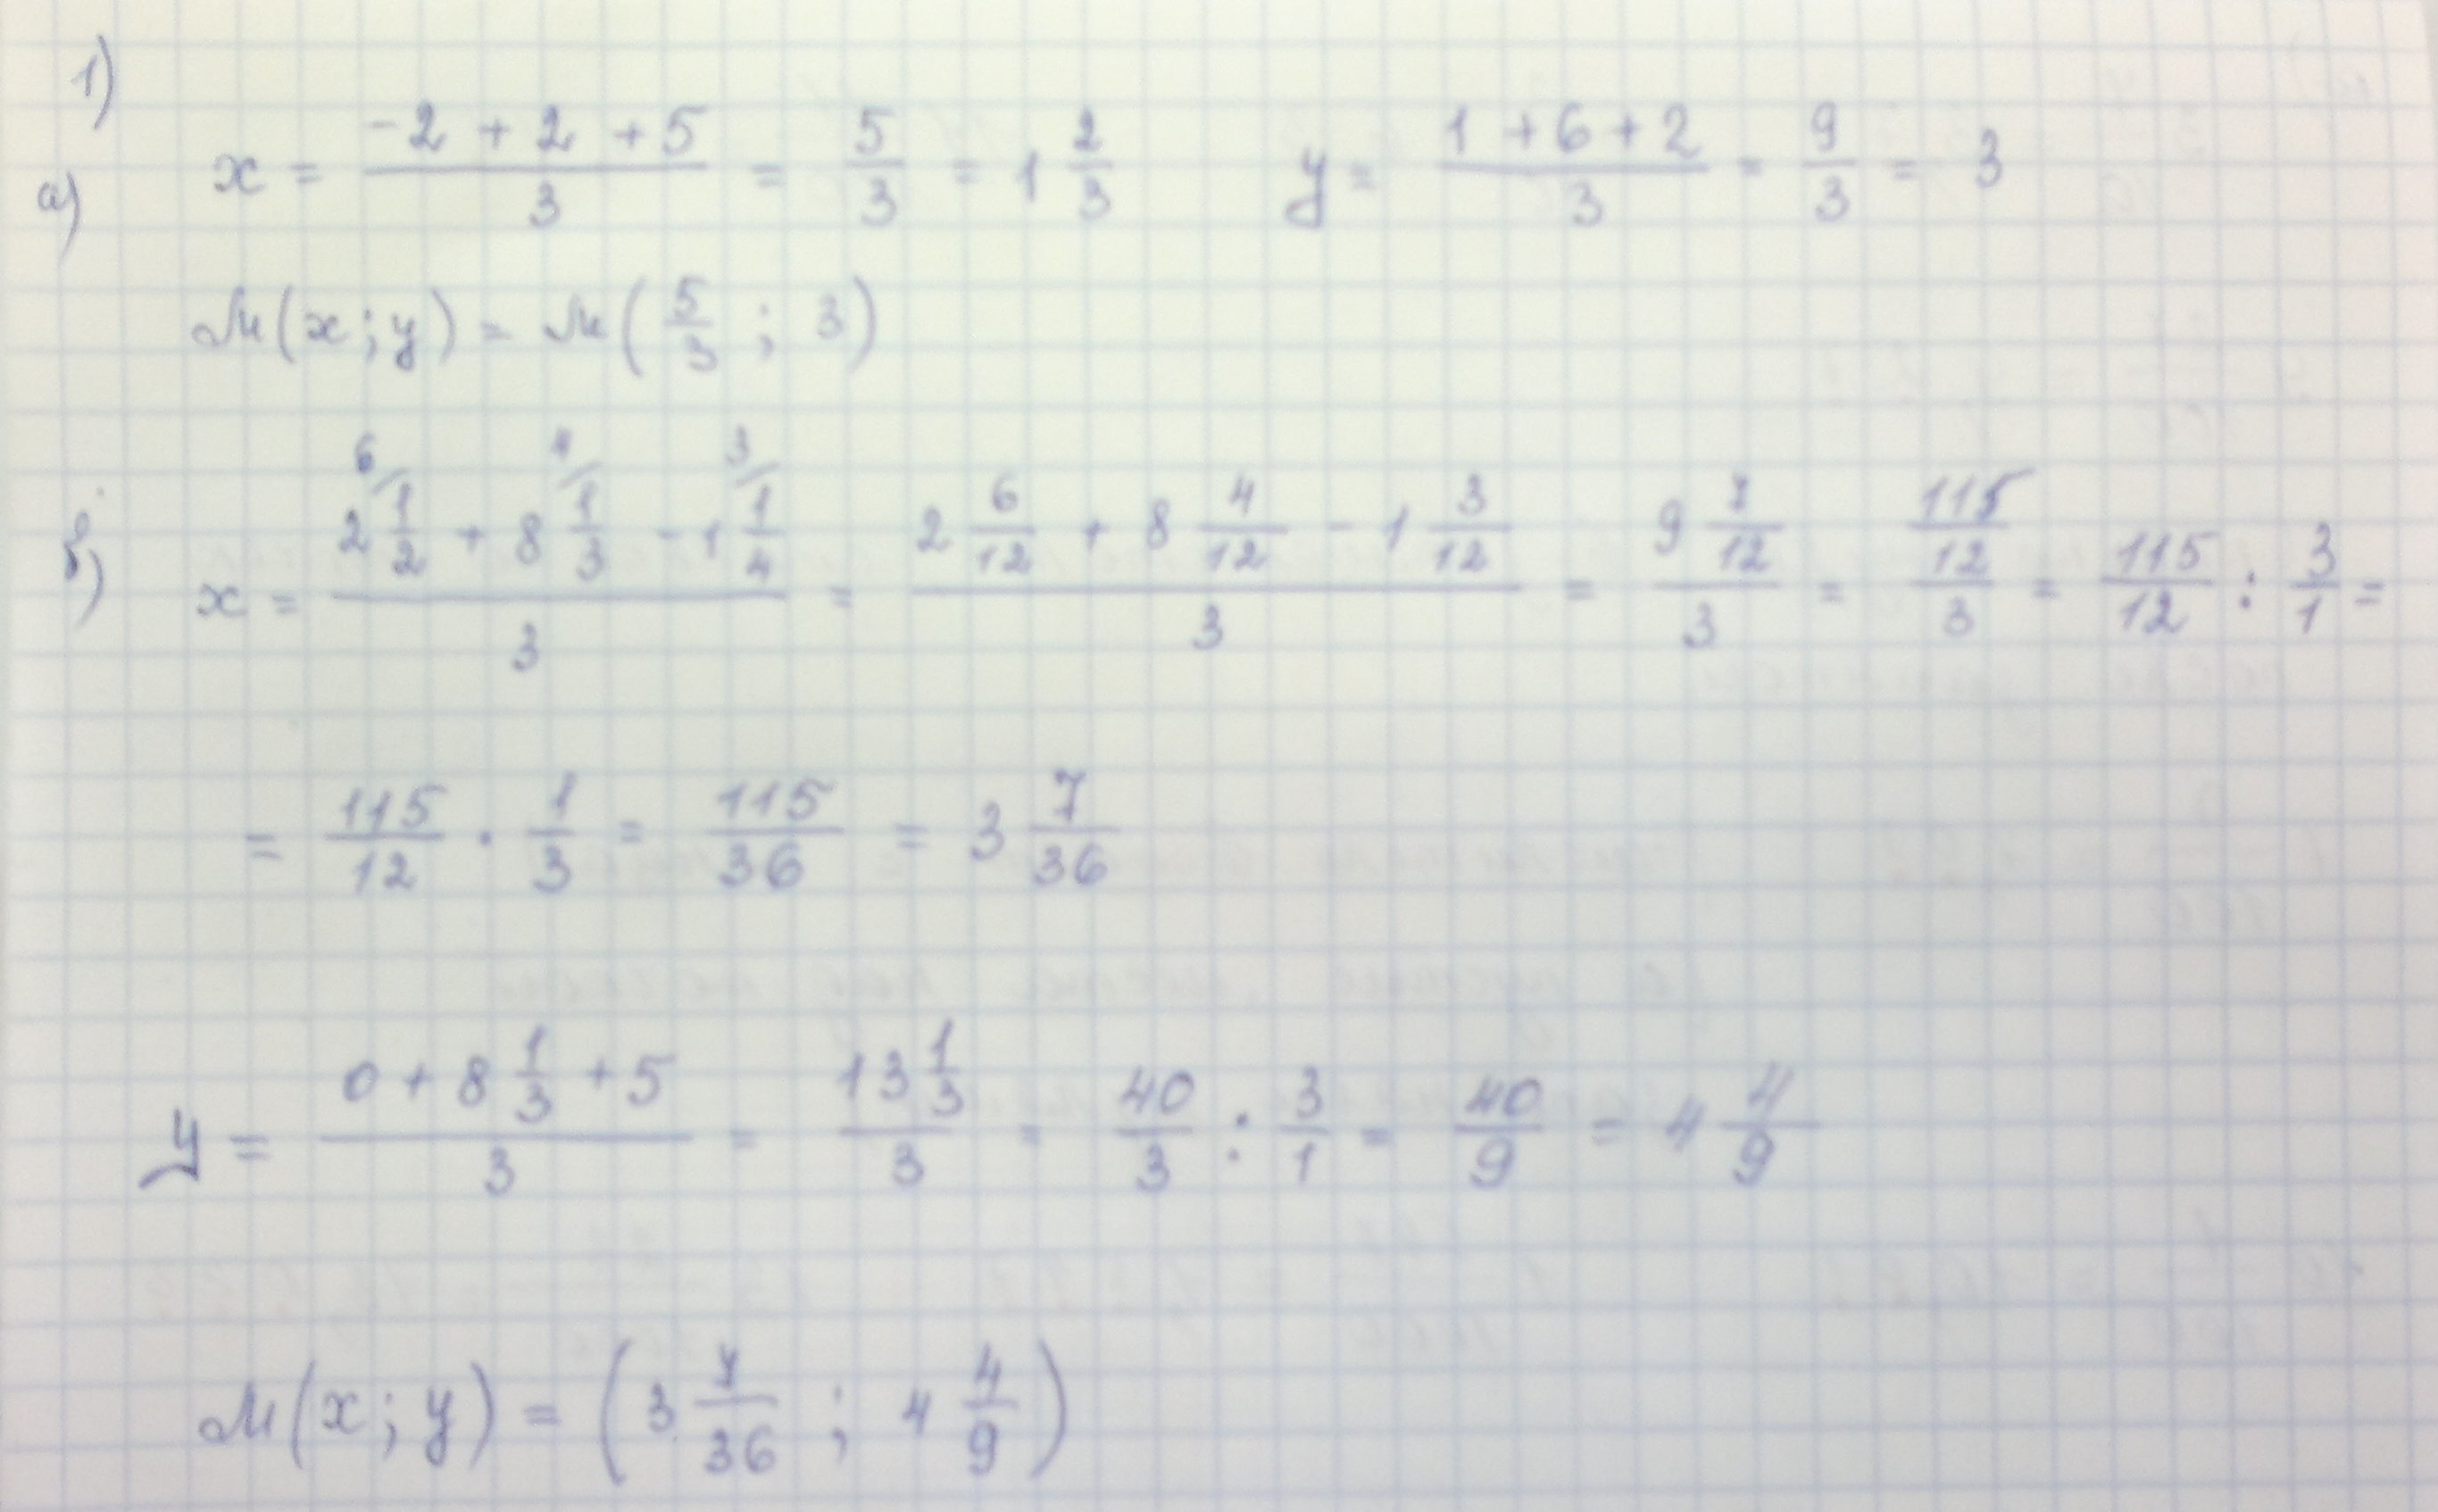 1)
а) x = (-2 + 2 + 5)/3 = 5/3 = 1 2/3   y = (1 + 6 + 2)/3 = 9/3 = 3
М(x; y) = М(5/3; 3)
б) x = (2 1/2 (6/) + 8 1/3 (4/) - 1 1/4 (3/))/3 = (2 6/12 + 8 4/12 - 1 3/12)/3 = (9 7/12)/3 = (115/12)/3 = 115/12 : 3/1 =
= 115/12 · 1/3 = 115/36 = 3 7/36
y = (0 + 8 1/3 + 5)/3 = (13 1/3)/3 = 40/3 : 3/1 = 40/9 = 4 4/9
М(x; y) = (3 7/36; 4 4/9)